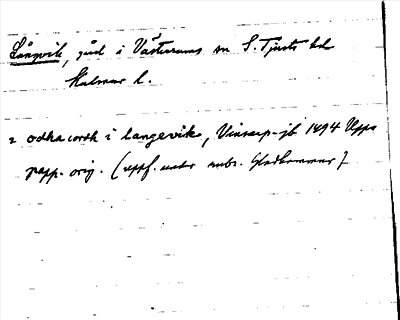 Långvik, gård i Västrums sn S. Tjusts hd
Kalmar l.
2 odha iordh i langevik, Vinsarp-jb 1494 Upps
papp. orig. (uppf. under rubr. Gladhammar)